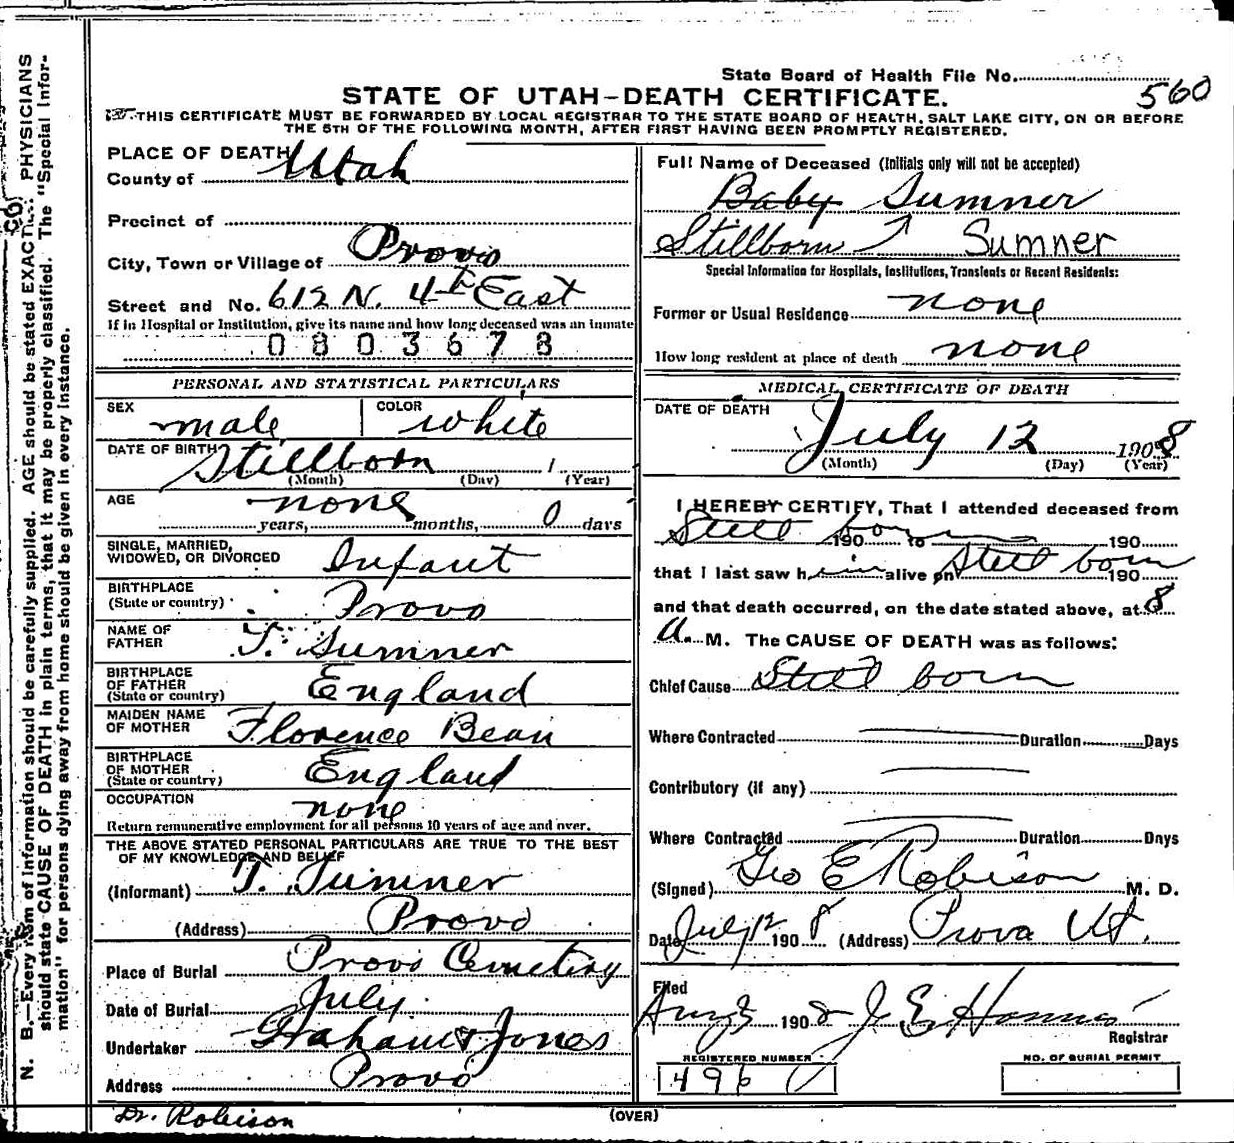 State Board of Health File No.
560
STATE OF UTAH-DEATH CERTIFICATE.
THIS CERTIFICATE MUST BE FORWARDED BY LOCAL REGISTRAR TO THE STATE BOARD OF HEALTH, SALT LAKE CITY, ON OR BEFORE
THE 5TH OF THE FOLLOWING MONTH, AFTER FIRST HAVING BEEN PROMPTLY REGISTERED.
PLACE OF DEATH
County of Utah
Precinct of
City, Town or Village of Provo
Street and No. 612 N. 4th East
If in Hospital or Institution, give its name and how long deceased was an inmate
0803678
PERSONAL AND STATISTICAL PARTICULARS
SEX male COLOR white
DATE OF BIRTH Stillborn 1
(Month) (Day) (Year)
AGE none
years, months, 0 days
SINGLE, MARRIED,
WIDOWED, OR DIVORCED Infant
BIRTHPLACE
(State or country) Provo
NAME OF
FATHER T. Sumner
BIRTHPLACE
OF FATHER
(State or country) England
MAIDEN NAME
OF MOTHER Florence Bean
BIRTHPLACE
OF MOTHER
(State or country) England
OCCUPATION none
Return remunerative employment for all persons 10 years of age and over.
THE ABOVE STATED PERSONAL PARTICULARS ARE TRUE TO THE BEST
OF MY KNOWLEDGE AND BELIEF
(Informant) T. Sumner
(Address) Provo
Place of Burial Provo Cemetery
Date of Burial July
Undertaker Graham & Jones
Address Provo
Dr. Robison
Full Name of Deceased (Initials only will not be accepted)
Baby Sumner
Stillborn Sumner
Special Information for Hospitals, Institutions, Transients or Recent Residents:
Former or Usual Residence none
How long resident at place of death none
MEDICAL CERTIFICATE OF DEATH
DATE OF DEATH
July 12 1908
(Month) (Day) (Year)
I HEREBY CERTIFY, That I attended deceased from
Still born 190 to 190
that I last saw him alive on Still born 190
and that death occurred, on the date stated above, at 8
A. M. The CAUSE OF DEATH was as follows:
Chief Cause Still born
Where Contracted Duration Days
Contributory (if any)
Where Contracted Duration Days
(Signed) Geo E Robison M. D.
Date July 12 1908 (Address) Provo Ut.
Filed
Aug 3 1908 J E
Registrar
REGISTERED NUMBER
496
NO. OF BURIAL PERMIT
(OVER)
N. B.—Every item of information should be carefully supplied. AGE should be stated EXACTLY. PHYSICIANS
should state CAUSE OF DEATH in plain terms, that it may be properly classified. The "Special Infor-
mation" for persons dying away from home should be given in every instance.